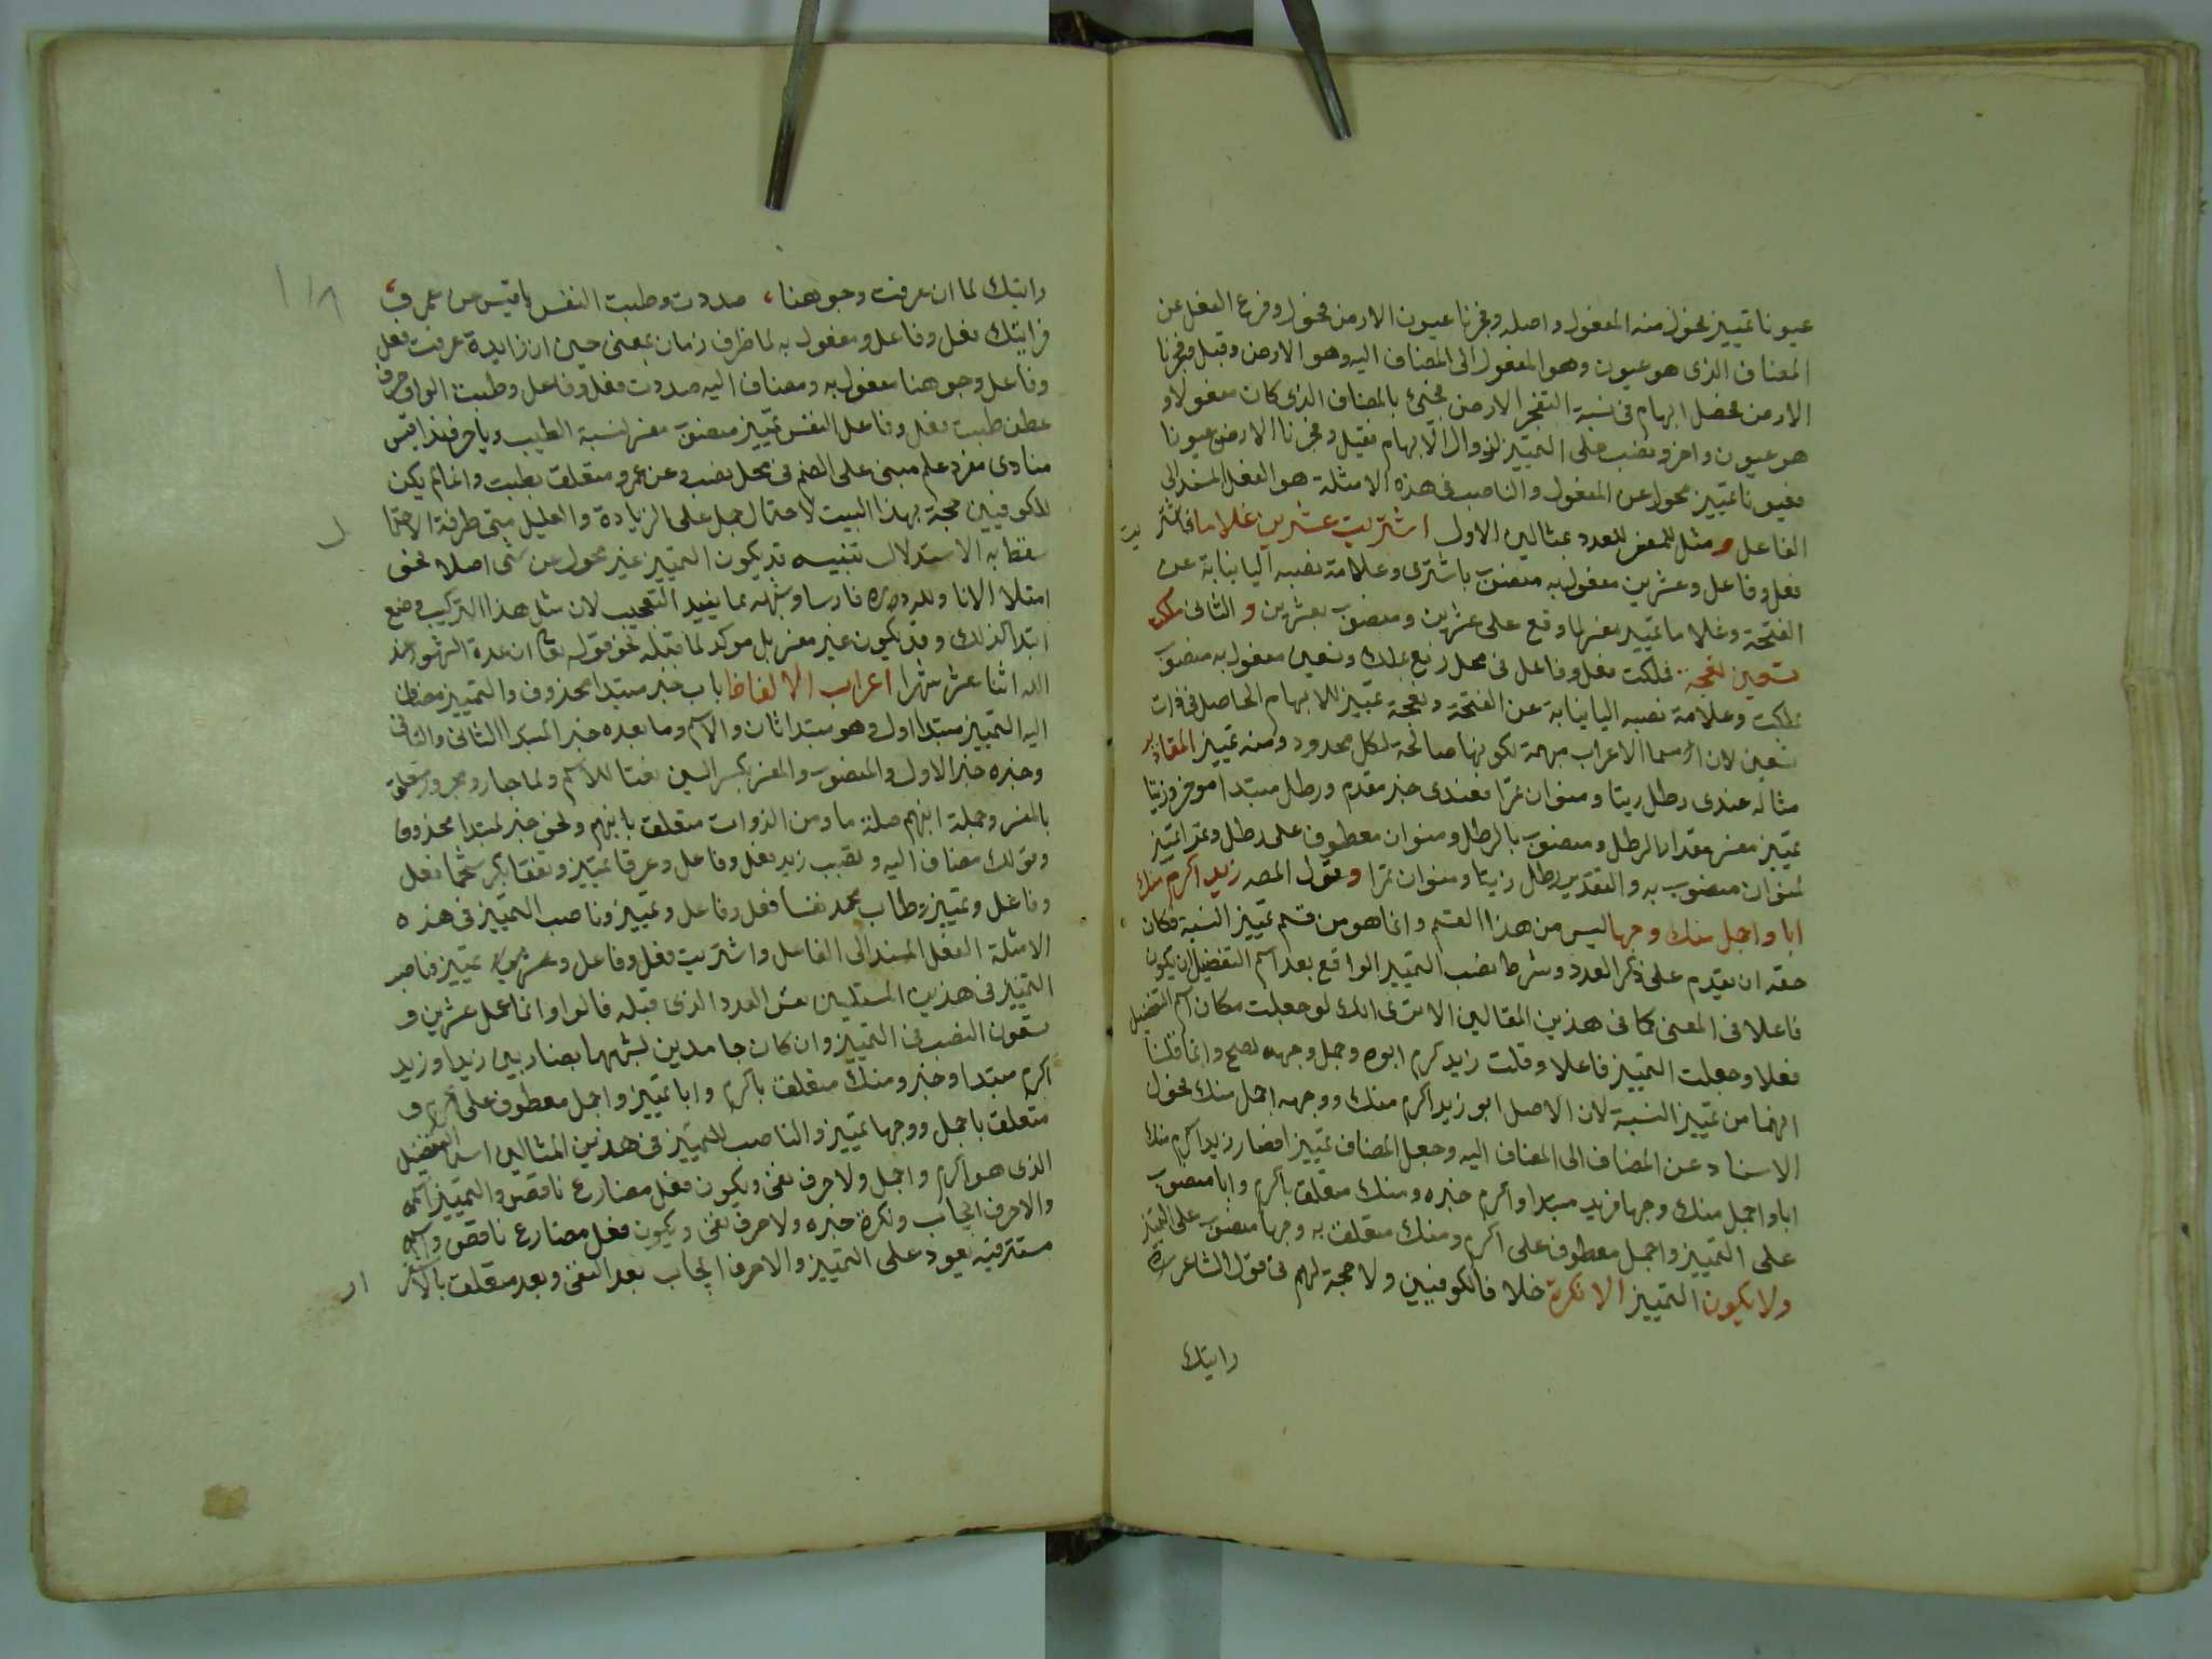 عيونا تمييز محول منه المفعول واصله وفجرنا عيون الارض فحول وفرع الفعل عن
المضاف الذى هو عيون وهو المفعول الى المضاف اليه وهو الارض وقيل وفجرنا
الارض فحصل ابهام فى نسبة التفجر الارض فجئ بالمضاف الذى كان مفعولا و
هو عيون واخر ونصب على التمييز لزوال الابهام فقيل وفجرنا الارض عيونا
فعيونا تمييز محول عن المفعول والناصب فى هذه الامثلة هو الفعل المسند الى
الفاعل ومثل للمفسر للعدد بمثالين الاول اشتريت عشرين غلاما فاشتر يت
فعل وفاعل وعشرين مفعول به منصوب باشترى وعلامة نصبه اليا نيابة عن
الفتحة وغلاما تمييز مفسر لما وقع على عشرين ومنصوب بعشرين و الثانى ملكت
تسعين نعجة فملكت فعل وفاعل فى محل رفع بملك وتسعين مفعول به منصوب
بملكت وعلامة نصبه اليا نيابة عن الفتحة ونعجة تمييز للابهام الحاصل فى ذات
تسعين لان اسما الاعراب مبهمة لكونها صالحة لكل معدود ومنه تمييز المقادير
مثاله عندى رطل زيتا ومنوان تمرا فعندى خبر مقدم ورطل مبتدا موخر وزيتا
تمييز مفسر مقدار الرطل ومنصوب بالرطل ومنوان معطوف على رطل وتمرا تمييز
لمنوان منصوب به والتقدير رطل زيتا ومنوان تمرا وقول المصه زيد اكرم منك
ابا واجمل منك وجها ليس من هذا القسم وانما هو من قسم تمييز النسبة فكان
حقه ان يقدم على ذكر العدد وشرط نصب التمييز الواقع بعد اسم التفضيل ان يكون
فاعلا فى المعنى كما فى هذين المقالين الا ترى انك لو جعلت مكان اسم التفضيل
فعلا وجعلت التمييز فاعلا وقلت زيد كرم ابوه وجمل وجهه لصح وانما قلنا
انهما من تمييز النسبة لان الاصل ابو زيد اكرم منك ووجهه اجمل منك فحول
الاسناد عن المضاف الى المضاف اليه وجعل المضاف تمييزا فصار زيد اكرم منك
ابا واجمل منك وجها فزيد مبتدا واكرم خبره ومنك متعلق باكرم وابا منصوب
على التمييز واجمل معطوف على اكرم ومنك متعلق به وجها منصوب على التمييز
ولا يكون التمييز الا نكرة خلافا للكوفيين ولا حجة لهم فى قول الشاعر
رايتك
رايتك لما ان عرفت وجوهنا، صددت وطبت النفس يا قيس عن عمرو،
فرايتك فعل وفاعل ومفعول به لما ظرف زمان بمعنى حين ان زايدة عرفت فعل
وفاعل وجوهنا مفعول به ومضاف اليه صددت فعل وفاعل وطبت الواو حرف
عطف طبت فعل وفاعل النفس تمييز منصوب مفسر لنسبة الطيب ويا حرف ندا قيس
منادى مفرد علم مبنى على الضم فى محل نصب وعن عمرو متعلق بطبت وانما لم يكن
للكوفيين حجة بهذا البيت لاحتمال حمل على الزيادة والدليل متى طرقه الاحتما ل
سقط به الاستدلال تنبيه قد يكون التمييز غير محول عن شى اصلا نحو
امتلا الانا ولله دره فارسا وشبهه مما يفيد التعجيب لان مثل هذا التركيب وضع
ابتدا لذلك وقد يكون غير مفسر بل موكد لما قبله نحو قوله تعا ان عدة الشهور عند
الله اثنا عشر شهرا اعراب الالفاظ باب خبر مبتدا محذوف والتمييز مضاف
اليه التمييز مبتدا اول وهو مبتدا ثان والاسم وما بعده خبر المبتدا الثانى والثانى
وخبره خبر الاول والمنصوب والمفسر بكسر السين نعتا للاسم ولما جار ومجرور متعلق
بالمفسر وجملة انبهم صلة ما ومن الذوات متعلق بانبهم ونحو خبر لمبتدا محذوف
وقولك مضاف اليه وتصبب زيد فعل وفاعل وعرقا تمييز وتفقا بكر شحما فعل
وفاعل وتمييز وطاب محمد نفسا فعل وفاعل وتمييز وناصب التمييز فى هذه
الامثلة الفعل المسند الى الفاعل واشتريت فعل وفاعل و تمييز وناصب
التمييز فى هذين المثلين نفس العدد الذى قبله قالوا وانما عمل عشرين و
تسعون النصب فى التمييز وان كان جامدين لشبههما بضاربين زيدا وزيد
اكرم مبتدا وخبر ومنك متعلق باكرم وابا تمييز واجمل معطوف على اكرم و
متعلق باجمل ووجها تمييز والناصب للتمييز فى هذين المثالين اسم التفضيل
الذى هو اكرم واجمل ولا حرف نفى ويكون فعل مضارع ناقص والتمييز اسمه
والا حرف ايجاب ونكرة خبره ولا حرف نفى ويكون فعل مضارع ناقص واسمه
مستتر فيه يعود على التمييز والا حرف ايجاب بعد النفى وبعد متعلق بالاستقر ار